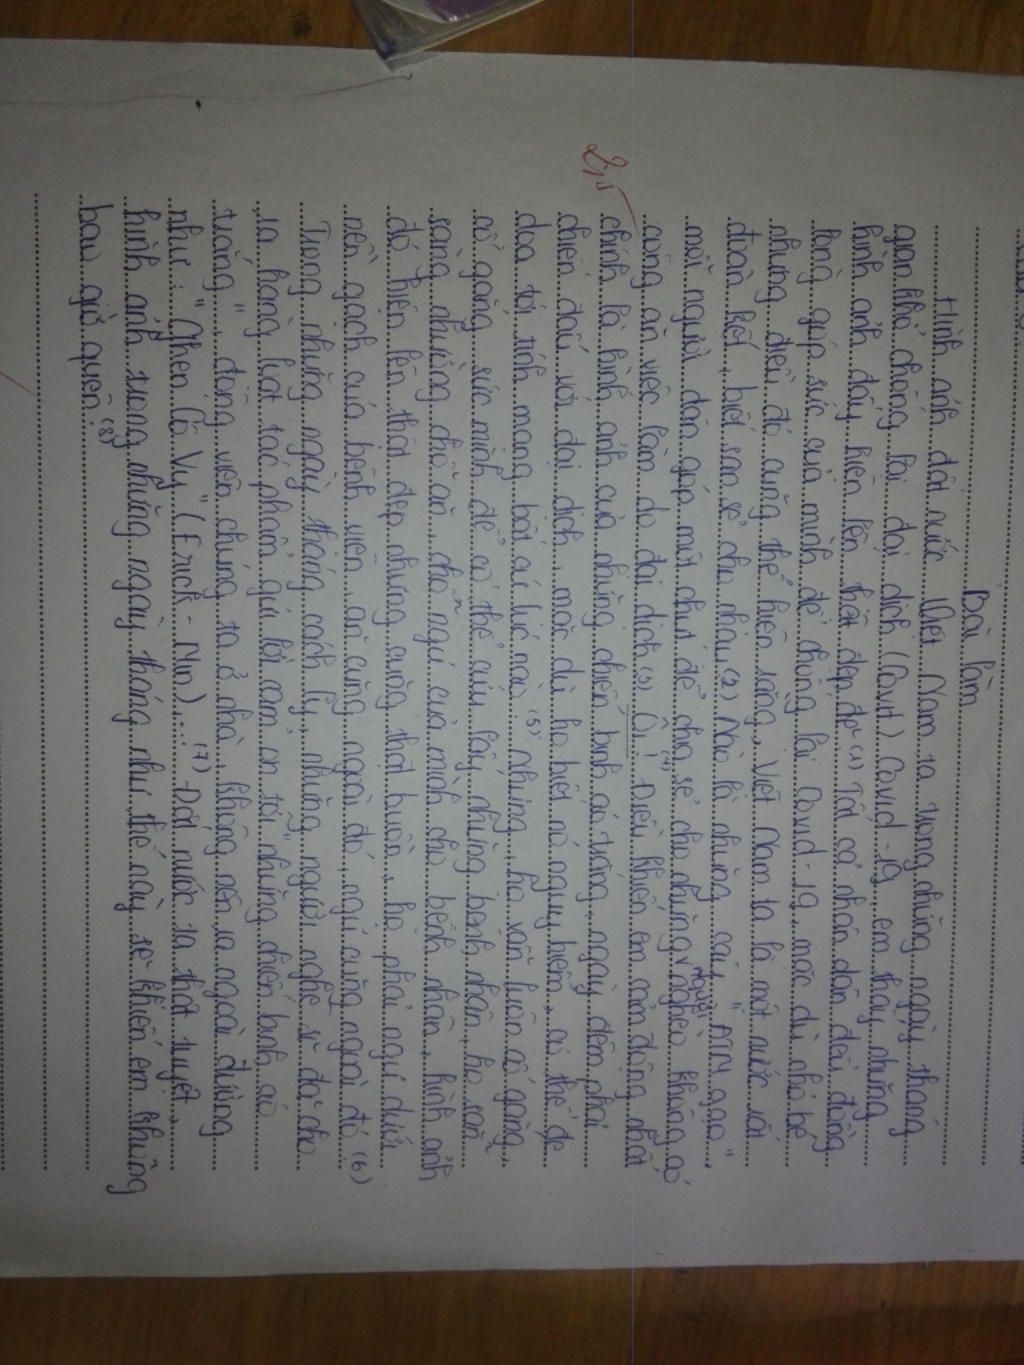 Bài làm
Hình ảnh đất nước Việt Nam ta trong những ngày tháng
gian khổ chống lại đại dịch (Covit) Covid-19, em thấy những
hình ảnh đấy hiện lên thật đẹp đẽ (1) Tất cả nhân dân đều đồng
lòng góp sức của mình để chống lại Covid-19, mặc dù nhỏ bé
nhưng điều đó cũng thể hiện rằng, Việt Nam ta là một nước rất
đoàn kết, biết san sẻ cho nhau (2) Nào là những cây "ATM gạo",
mỗi người dân góp một chút để chia sẻ cho những người nghèo không có
công ăn việc làm do đại dịch (3) Ôi! (4) Điều khiến em cảm động nhất
2,5 chính là hình ảnh của những chiến binh áo trắng, ngày đêm phải
chiến đấu với đại dịch, mặc dù họ biết nó nguy hiểm, có thể đe
doạ tới tính mạng bất cứ lúc nào. (5) Nhưng, họ vẫn luôn cố gắng,
cố gắng sức mình để có thể cứu lấy những bệnh nhân, họ sẵn
sàng nhường chỗ ăn, chỗ ngủ của mình cho bệnh nhân, hình ảnh
đó hiện lên thật đẹp nhưng cũng thật buồn, họ phải ngủ dưới
nền gạch của bệnh viện, ăn cũng ngoài đó, ngủ cũng ngoài đó (6)
Trong những ngày tháng cách ly, những người nghệ sĩ đã cho
ra hàng loạt tác phẩm gửi lời cảm ơn tới "những chiến binh áo
trắng", động viên chúng ta ở nhà, không nên ra ngoài đường
như: "Ghen Cô Vy" (Erick - Min),... (7) Đất nước ta thật tuyệt,
hình ảnh trong những ngày tháng như thế này sẽ khiến em không
bao giờ quên. (8)